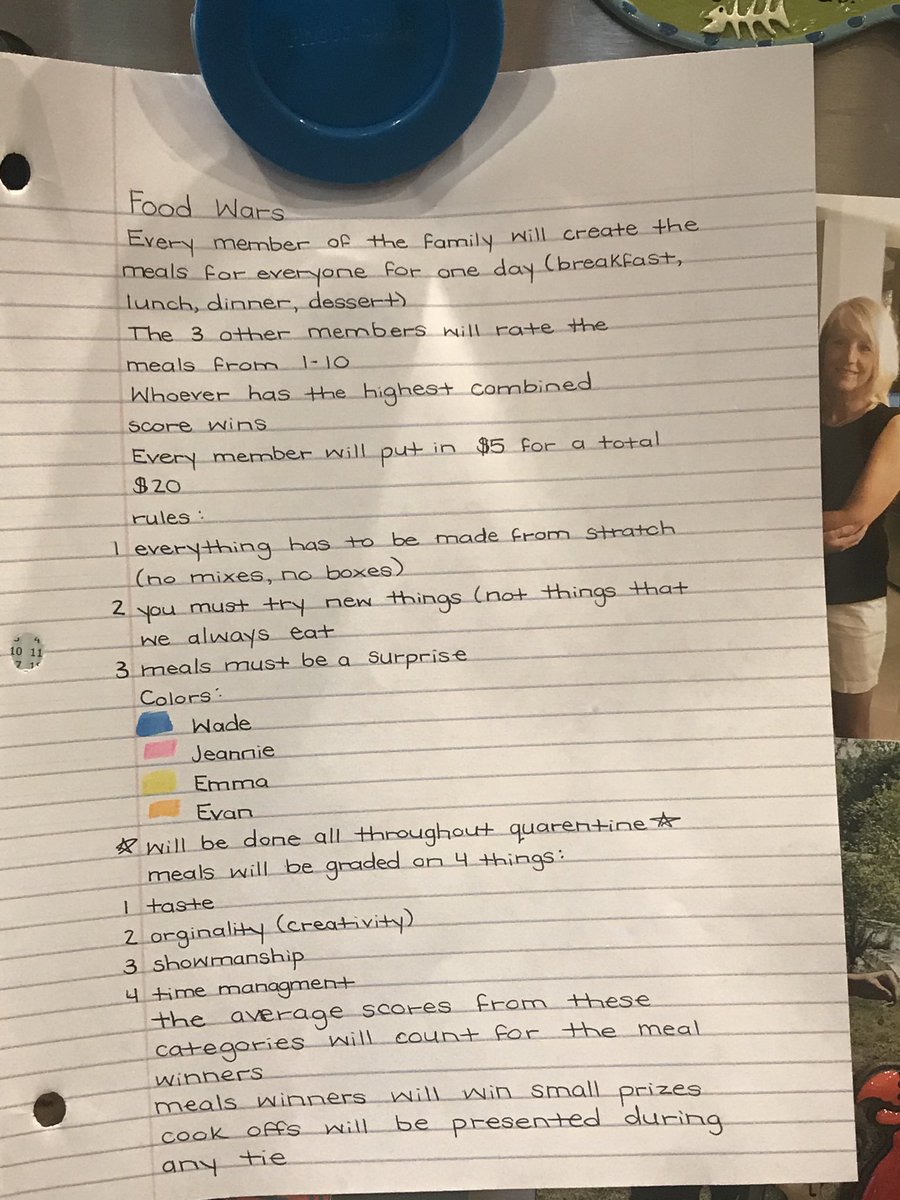 Food Wars
Every member of the family will create the
meals for everyone for one day (breakfast,
lunch, dinner, dessert)
The 3 other members will rate the
meals from 1-10
Whoever has the highest combined
score wins
Every member will put in $5 for a total
$20
rules:
1 everything has to be made from stratch
(no mixes, no boxes)
2 you must try new things (not things that
we always eat
3 meals must be a surprise
Colors:
Wade
Jeannie
Emma
Evan
☆ will be done all throughout quarentine ☆
meals will be graded on 4 things:
1 taste
2 orginality (creativity)
3 showmanship
4 time managment
the average scores from these
categories will count for the meal
winners
meals winners will win small prizes
cook offs will be presented during
any tie
10 11